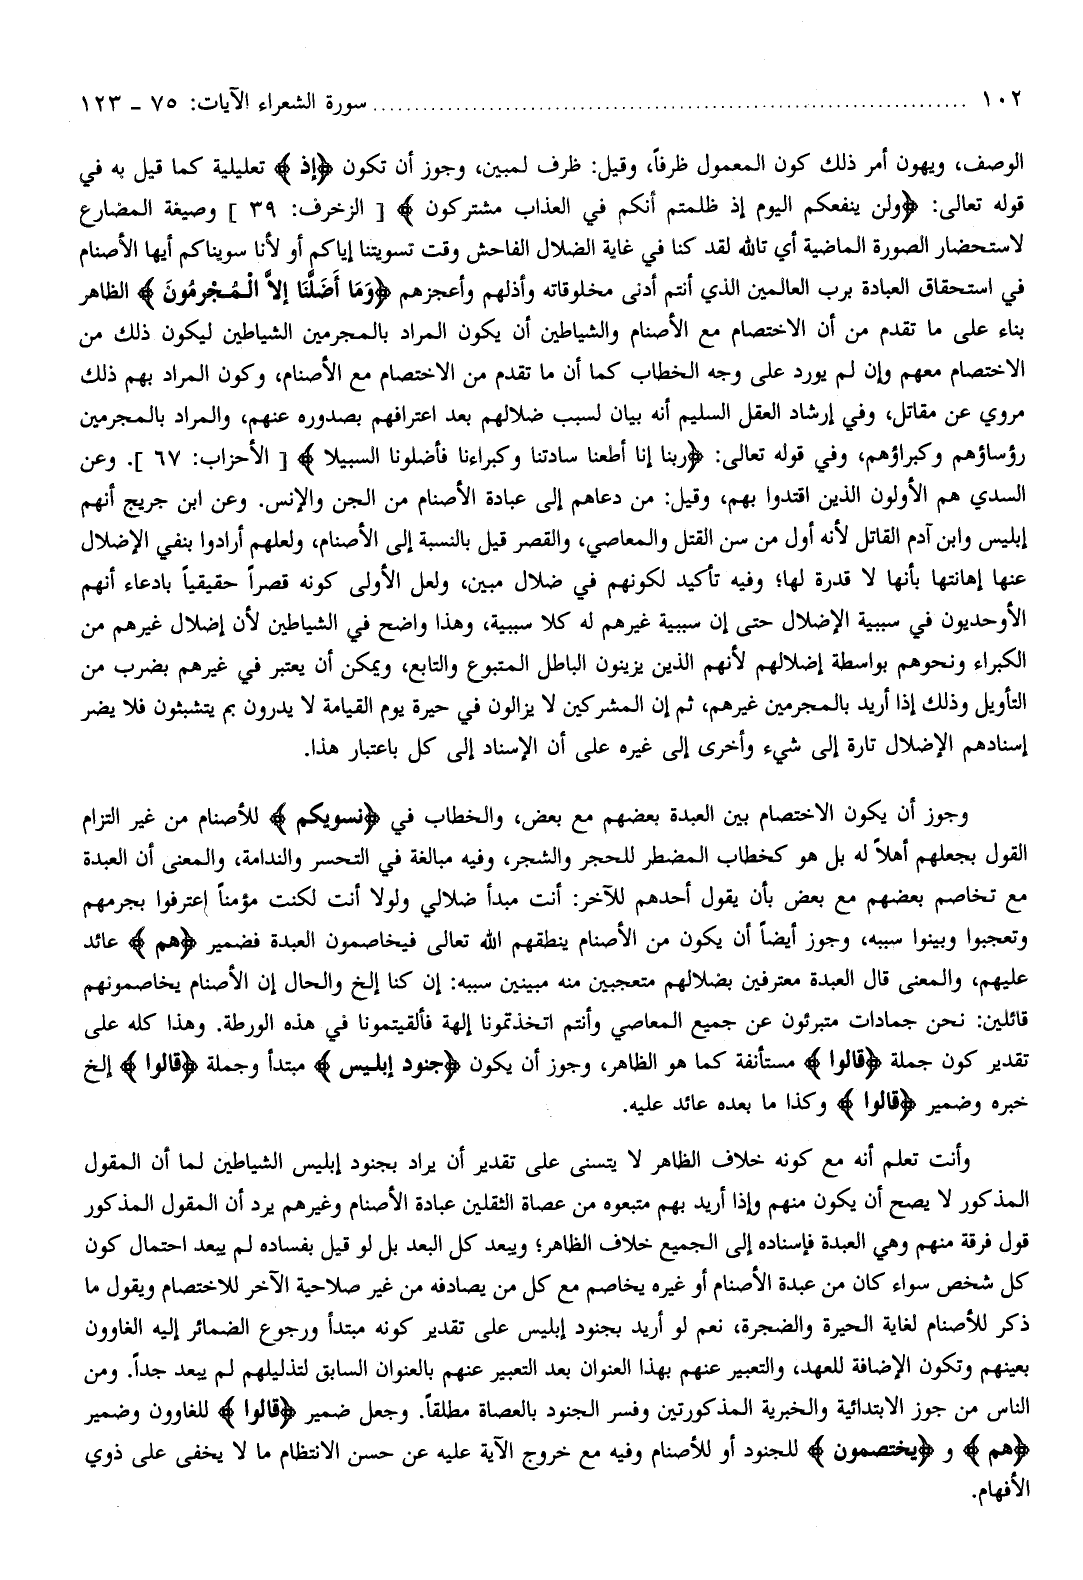 ١٠٢ ........................................................................ سورة الشعراء الآيات: ٧٥ ـ ١٢٣
الوصف، ويهون أمر ذلك كون المعمول ظرفاً، وقيل: ظرف لمبين، وجوز أن تكون ﴿إذ ﴾ تعليلية كما قيل به في
قوله تعالى: ﴿ولن ينفعكم اليوم إذ ظلمتم أنكم في العذاب مشتركون ﴾ [ الزخرف: ٣٩ ] وصيغة المضارع
لاستحضار الصورة الماضية أي تالله لقد كنا في غاية الضلال الفاحش وقت تسويتنا إياكم أو لأنا سويناكم أيها الأصنام
في استحقاق العبادة برب العالمين الذي أنتم أدنى مخلوقاته وأذلهم وأعجزهم ﴿وَمَا أَضَلَّنَا إلاَّ الْمُجْرِمُونَ ﴾ الظاهر
بناء على ما تقدم من أن الاختصام مع الأصنام والشياطين أن يكون المراد بالمجرمين الشياطين ليكون ذلك من
الاختصام معهم وإن لم يورد على وجه الخطاب كما أن ما تقدم من الاختصام مع الأصنام، وكون المراد بهم ذلك
مروي عن مقاتل، وفي إرشاد العقل السليم أنه بيان لسبب ضلالهم بعد اعترافهم بصدوره عنهم، والمراد بالمجرمين
رؤساؤهم وكبراؤهم، وفي قوله تعالى: ﴿ربنا إنا أطعنا سادتنا وكبراءنا فأضلونا السبيلا ﴾ [ الأحزاب: ٦٧ ]. وعن
السدي هم الأولون الذين اقتدوا بهم، وقيل: من دعاهم إلى عبادة الأصنام من الجن والإنس. وعن ابن جريج أنهم
إبليس وابن آدم القاتل لأنه أول من سن القتل والمعاصي، والقصر قيل بالنسبة إلى الأصنام، ولعلهم أرادوا بنفي الإضلال
عنها إهانتها بأنها لا قدرة لها؛ وفيه تأكيد لكونهم في ضلال مبين، ولعل الأولى كونه قصراً حقيقياً بادعاء أنهم
الأوحديون في سببية الإضلال حتى إن سببية غيرهم له كلا سببية، وهذا واضح في الشياطين لأن إضلال غيرهم من
الكبراء ونحوهم بواسطة إضلالهم لأنهم الذين يزينون الباطل المتبوع والتابع، ويمكن أن يعتبر في غيرهم بضرب من
التأويل وذلك إذا أريد بالمجرمين غيرهم، ثم إن المشركين لا يزالون في حيرة يوم القيامة لا يدرون بم يتشبثون فلا يضر
إسنادهم الإضلال تارة إلى شيء وأخرى إلى غيره على أن الإسناد إلى كل باعتبار هذا.
وجوز أن يكون الاختصام بين العبدة بعضهم مع بعض، والخطاب في ﴿نسويكم ﴾ للأصنام من غير التزام
القول بجعلهم أهلاً له بل هو كخطاب المضطر للحجر والشجر، وفيه مبالغة في التحسر والندامة، والمعنى أن العبدة
مع تخاصم بعضهم مع بعض بأن يقول أحدهم للآخر: أنت مبدأ ضلالي ولولا أنت لكنت مؤمناً إعترفوا بجرمهم
وتعجبوا وبينوا سببه، وجوز أيضاً أن يكون من الأصنام ينطقهم الله تعالى فيخاصمون العبدة فضمير ﴿هم ﴾ عائد
عليهم، والمعنى قال العبدة معترفين بضلالهم متعجبين منه مبينين سببه: إن كنا إلخ والحال إن الأصنام يخاصمونهم
قائلين: نحن جمادات متبرئون عن جميع المعاصي وأنتم اتخذتمونا إلهة فألقيتمونا في هذه الورطة. وهذا كله على
تقدير كون جملة ﴿قالوا ﴾ مستأنفة كما هو الظاهر، وجوز أن يكون ﴿جنود إبليس ﴾ مبتدأ وجملة ﴿قالوا ﴾ إلخ
خبره وضمير ﴿قالوا ﴾ وكذا ما بعده عائد عليه.
وأنت تعلم أنه مع كونه خلاف الظاهر لا يتسنى على تقدير أن يراد بجنود إبليس الشياطين لما أن المقول
المذكور لا يصح أن يكون منهم وإذا أريد بهم متبعوه من عصاة الثقلين عبادة الأصنام وغيرهم يرد أن المقول المذكور
قول فرقة منهم وهي العبدة فإسناده إلى الجميع خلاف الظاهر؛ ويبعد كل البعد بل لو قيل بفساده لم يبعد احتمال كون
كل شخص سواء كان من عبدة الأصنام أو غيره يخاصم مع كل من يصادفه من غير صلاحية الآخر للاختصام ويقول ما
ذكر للأصنام لغاية الحيرة والضجرة، نعم لو أريد بجنود إبليس على تقدير كونه مبتدأ ورجوع الضمائر إليه الغاوون
بعينهم وتكون الإضافة للعهد، والتعبير عنهم بهذا العنوان بعد التعبير عنهم بالعنوان السابق لتذليلهم لم يبعد جداً. ومن
الناس من جوز الابتدائية والخبرية المذكورتين وفسر الجنود بالعصاة مطلقاً. وجعل ضمير ﴿قالوا ﴾ للغاوون وضمير
﴿هم ﴾ و ﴿يختصمون ﴾ للجنود أو للأصنام وفيه مع خروج الآية عليه عن حسن الانتظام ما لا يخفى على ذوي
الأفهام.